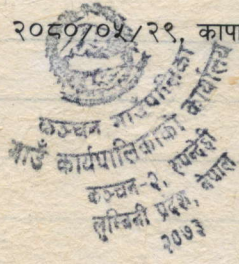 २०८०/०५/२९, कापा
कञ्चन गाउँपालिका
गाउँ कार्यपालिकाको कार्यालय
कञ्चन-२, रुपन्देही
लुम्बिनी प्रदेश, नेपाल
२०७३